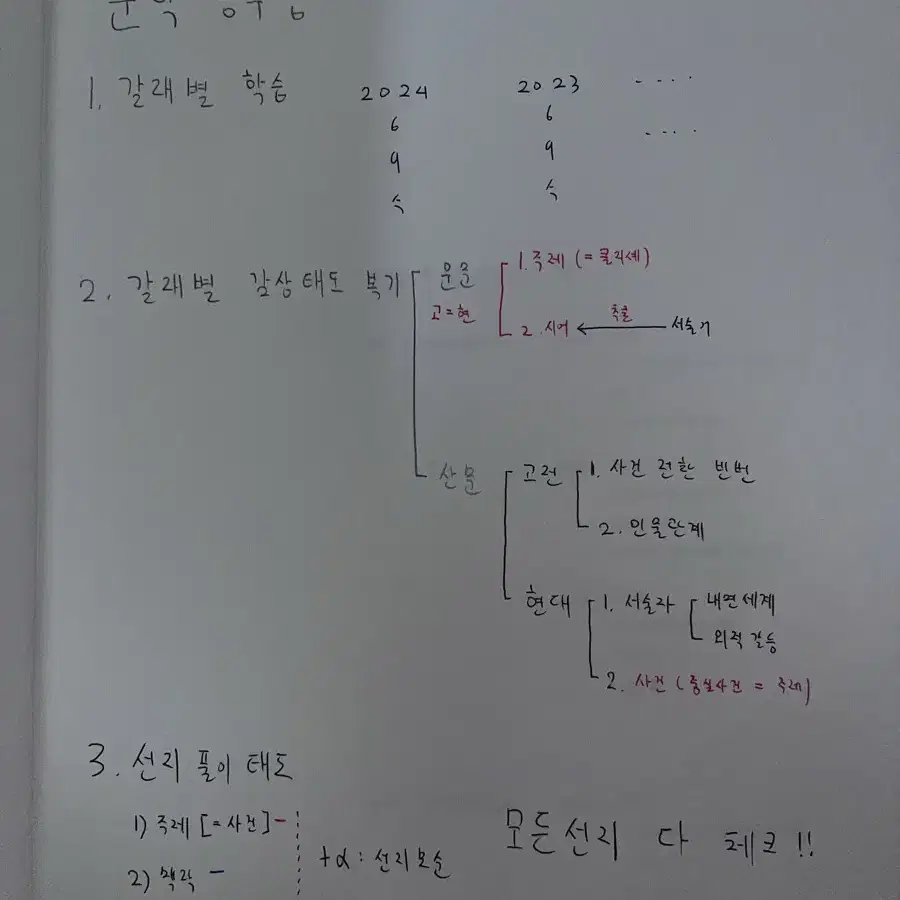 1. 갈래별 학습 2024 2023 ....
6 6
9 9 ....
수 수
2. 갈래별 감상태도 복기
운문
고=현
1. 주제 (=클리셰)
2. 시어 ← 서술어
산문
고전
1. 사건 전환 빈번
2. 인물관계
현대
1. 서술자
내면세계
외적갈등
2. 사건 (중심사건 = 주제)
3. 선지 풀이 태도
1) 주제 [=사건] -
2) 맥락 -
+α : 선지모순
모든선지 다 체크!!